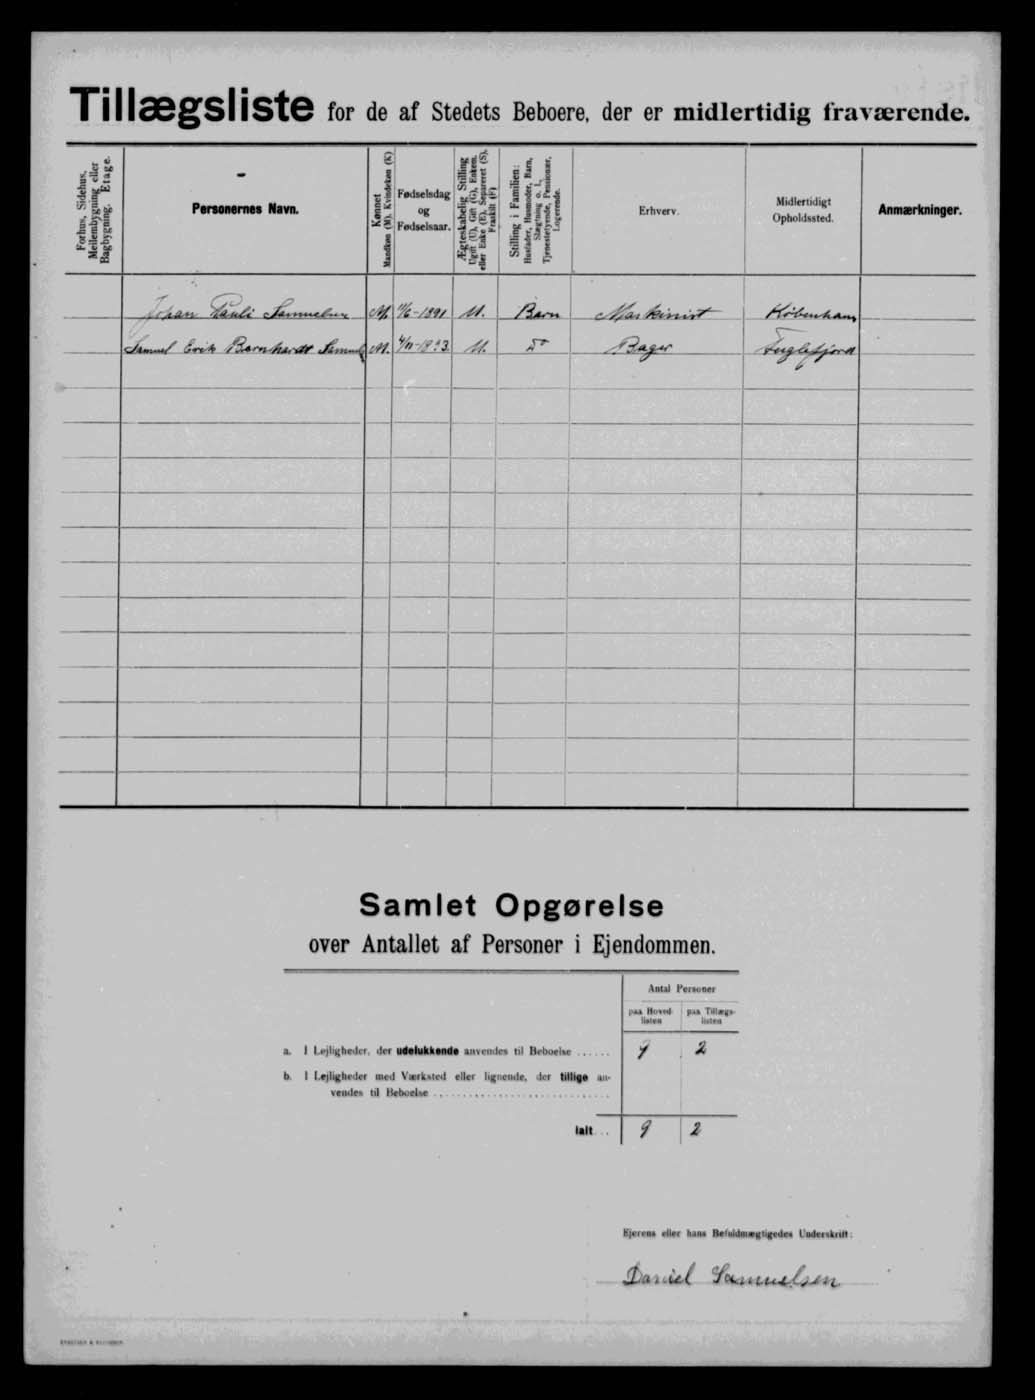 Tillægsliste for de af Stedets Beboere, der er midlertidig fraværende.
Forhus, Sidehus, Mellembygning eller Bagbygning. Etage.
Personernes Navn.
Kønnet
Mandkøn (M). Kvindekøn (K)
Fødselsdag
og
Fødselsaar.
Ægteskabelig Stilling
Ugift (U), Gift (G), Enkem. eller Enke (E), Separeret (S), Fraskilt (F)
Stilling i Familien:
Husfader, Husmoder, Barn, Slægtning o. l., Tjenestetyende, Pensionær, Logerende.
Erhverv.
Midlertidigt
Opholdssted.
Anmærkninger.
Johan Pauli Samuelsen M. /6-1891 U. Barn Maskinist København
Samuel Erik Bernhardt Samuels M. U. Do Bager Fuglefjord
Samlet Opgørelse
over Antallet af Personer i Ejendommen.
Antal Personer
paa Hoved-listen
paa Tillægs-listen
a. I Lejligheder, der udelukkende anvendes til Beboelse ...... 9 2
b. I Lejligheder med Værksted eller lignende, der tillige an-
vendes til Beboelse ..............................
Ialt... 9 2
Ejerens eller hans Befuldmægtigedes Underskrift:
Daniel Samuelsen